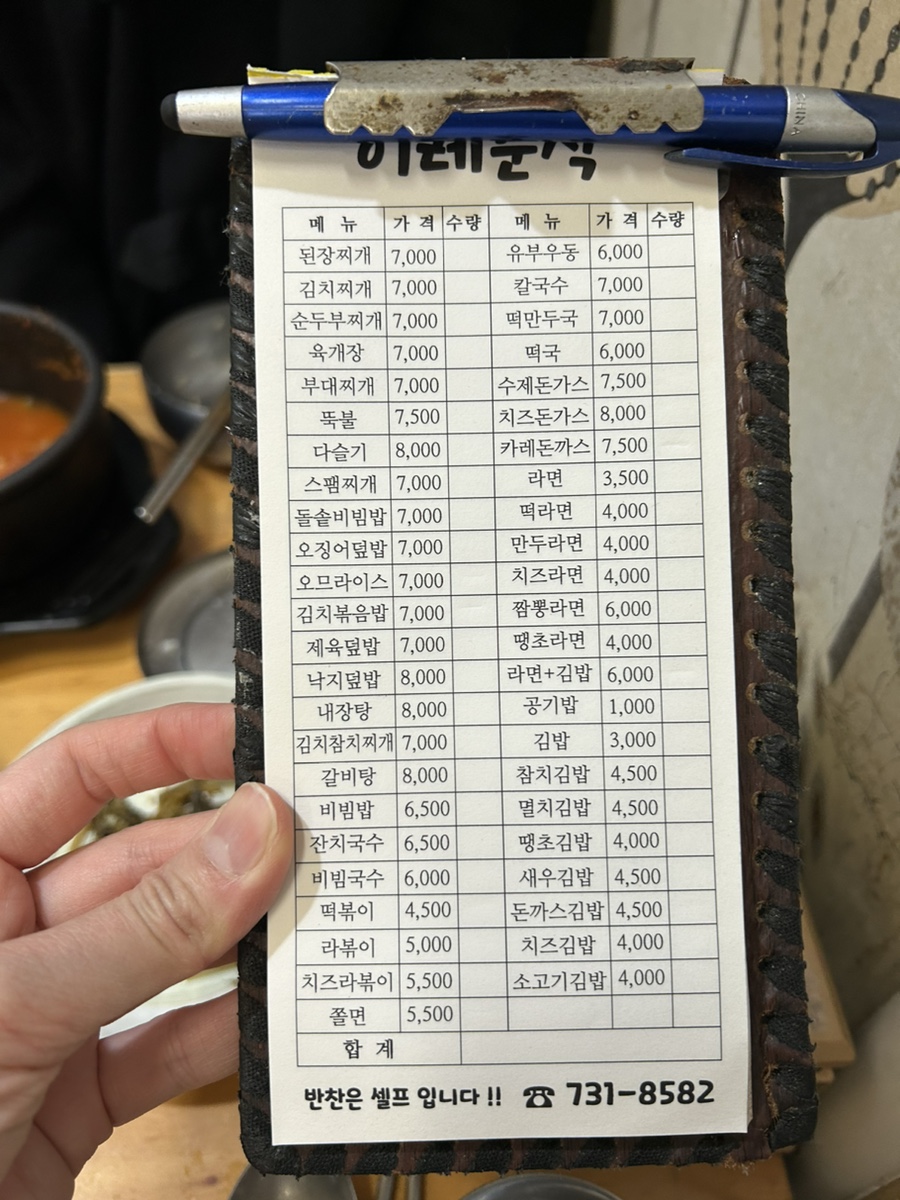 이레분식
메 뉴 가 격 수량 메 뉴 가 격 수량
된장찌개 7,000 유부우동 6,000
김치찌개 7,000 칼국수 7,000
순두부찌개 7,000 떡만두국 7,000
육개장 7,000 떡국 6,000
부대찌개 7,000 수제돈가스 7,500
뚝불 7,500 치즈돈가스 8,000
다슬기 8,000 카레돈까스 7,500
스팸찌개 7,000 라면 3,500
돌솥비빔밥 7,000 떡라면 4,000
오징어덮밥 7,000 만두라면 4,000
오므라이스 7,000 치즈라면 4,000
김치볶음밥 7,000 짬뽕라면 6,000
제육덮밥 7,000 땡초라면 4,000
낙지덮밥 8,000 라면+김밥 6,000
내장탕 8,000 공기밥 1,000
김치참치찌개 7,000 김밥 3,000
갈비탕 8,000 참치김밥 4,500
비빔밥 6,500 멸치김밥 4,500
잔치국수 6,500 땡초김밥 4,000
비빔국수 6,000 새우김밥 4,500
떡볶이 4,500 돈까스김밥 4,500
라볶이 5,000 치즈김밥 4,000
치즈라볶이 5,500 소고기김밥 4,000
쫄면 5,500
합 계
반찬은 셀프 입니다 !! ☎ 731-8582
CHINA